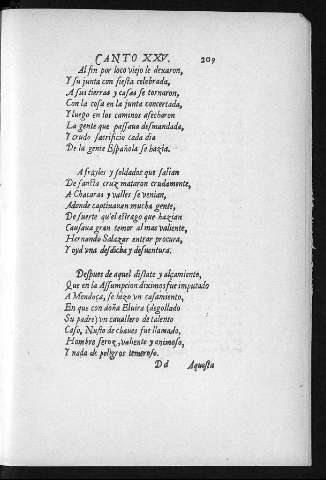 CANTO XXV. 209
Al fin por loco viejo le dexaron,
Y su junta con fiesta celebrada,
A sus tierras y casas se tornaron,
Con la cosa en la junta concertada,
Y luego en los caminos asecharon
La gente que passaua desmandada,
Y crudo sacrificio cada dia
De la gente Española se hazia.
A frayles y soldados que salian
De sancta cruz mataron crudamente,
A Chacaras y valles se venian,
Adonde captiuauan mucha gente,
De suerte qu'el estrago que hazian
Causaua gran temor al mas valiente,
Hernando Salazar entrar procura,
Y oyd vna desdicha y desuentura.
Despues de aquel distate y alçamiento,
Que en la Assumpcion diximos fue imputado
A Mendoça, se hizo vn casamiento,
En que con doña Eluira (degollado
Su padre) vn cauallero de talento
Caso, Nuflo de chaues fue llamado,
Hombre feroz, valiente y animoso,
Y nada de peligros temeroso.
Dd Aquesta